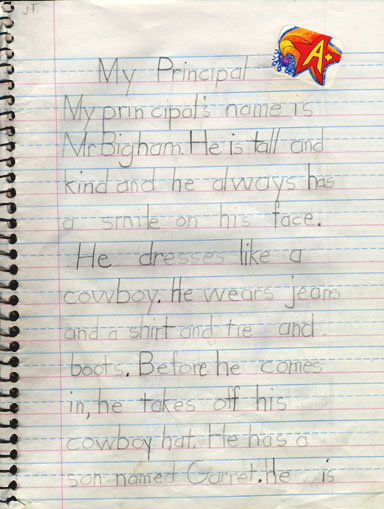 JT
A+
My Principal
My principal's name is
Mr Bigham. He is tall and
kind and he always has
a smile on his face.
He dresses like a
cowboy. He wears jeans
and a shirt and tie and
boots. Before he comes
in, he takes off his
cowboy hat. He has a
son named Garret. He is